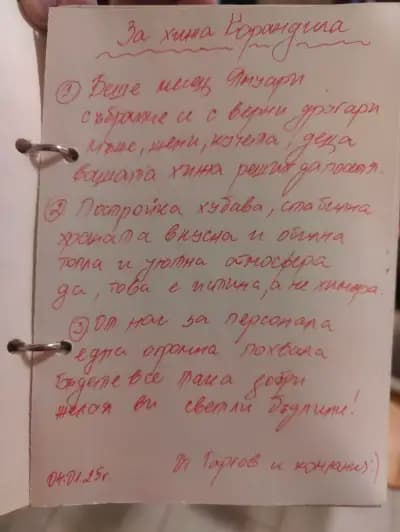 За хижа Карандила
① Беше месец Януари
събрахме и с верни другари
мъже, жени, кучета, деца
вашата хижа решихме да посетя.
② Постройка хубава, стабилна
храната вкусна и обилна
топла и уютна атмосфера
да, това е истина, а не химера.
③ От нас за персонала
една огромна похвала
бъдете все така добри
желая ви светли бъднини!
04.01.25г.
От и компания:)